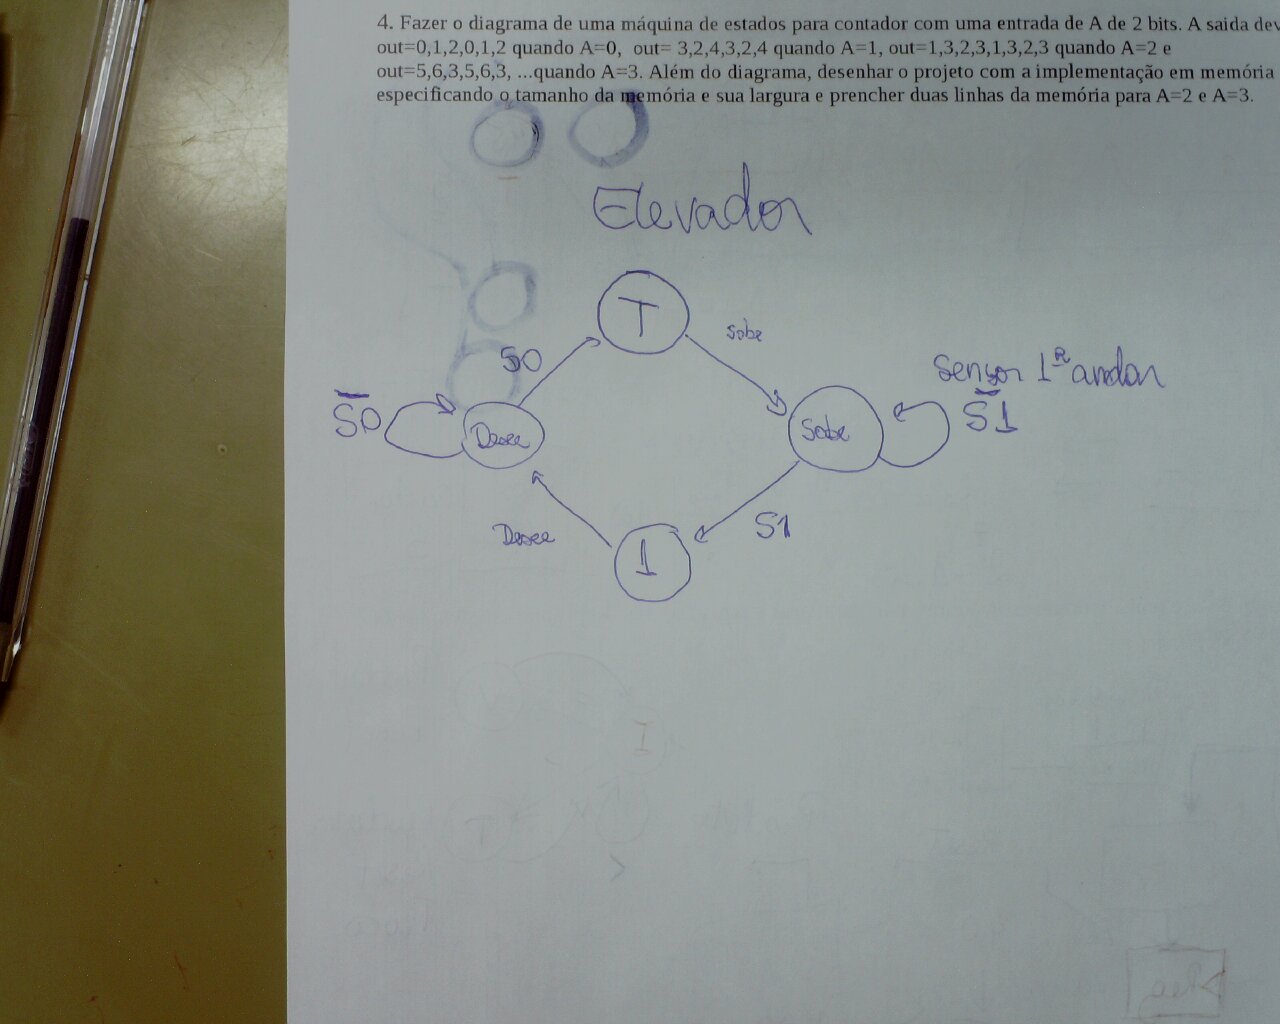 4. Fazer o diagrama de uma máquina de estados para contador com uma entrada de A de 2 bits. A saida dev
out=0,1,2,0,1,2 quando A=0, out= 3,2,4,3,2,4 quando A=1, out=1,3,2,3,1,3,2,3 quando A=2 e
out=5,6,3,5,6,3, ...quando A=3. Além do diagrama, desenhar o projeto com a implementação em memória
especificando o tamanho da memória e sua largura e prencher duas linhas da memória para A=2 e A=3.
Elevador
T
Sobe
S0
Sensor 1º andar
S̅0
Desce
Sobe
S̅1
Desce
S1
1